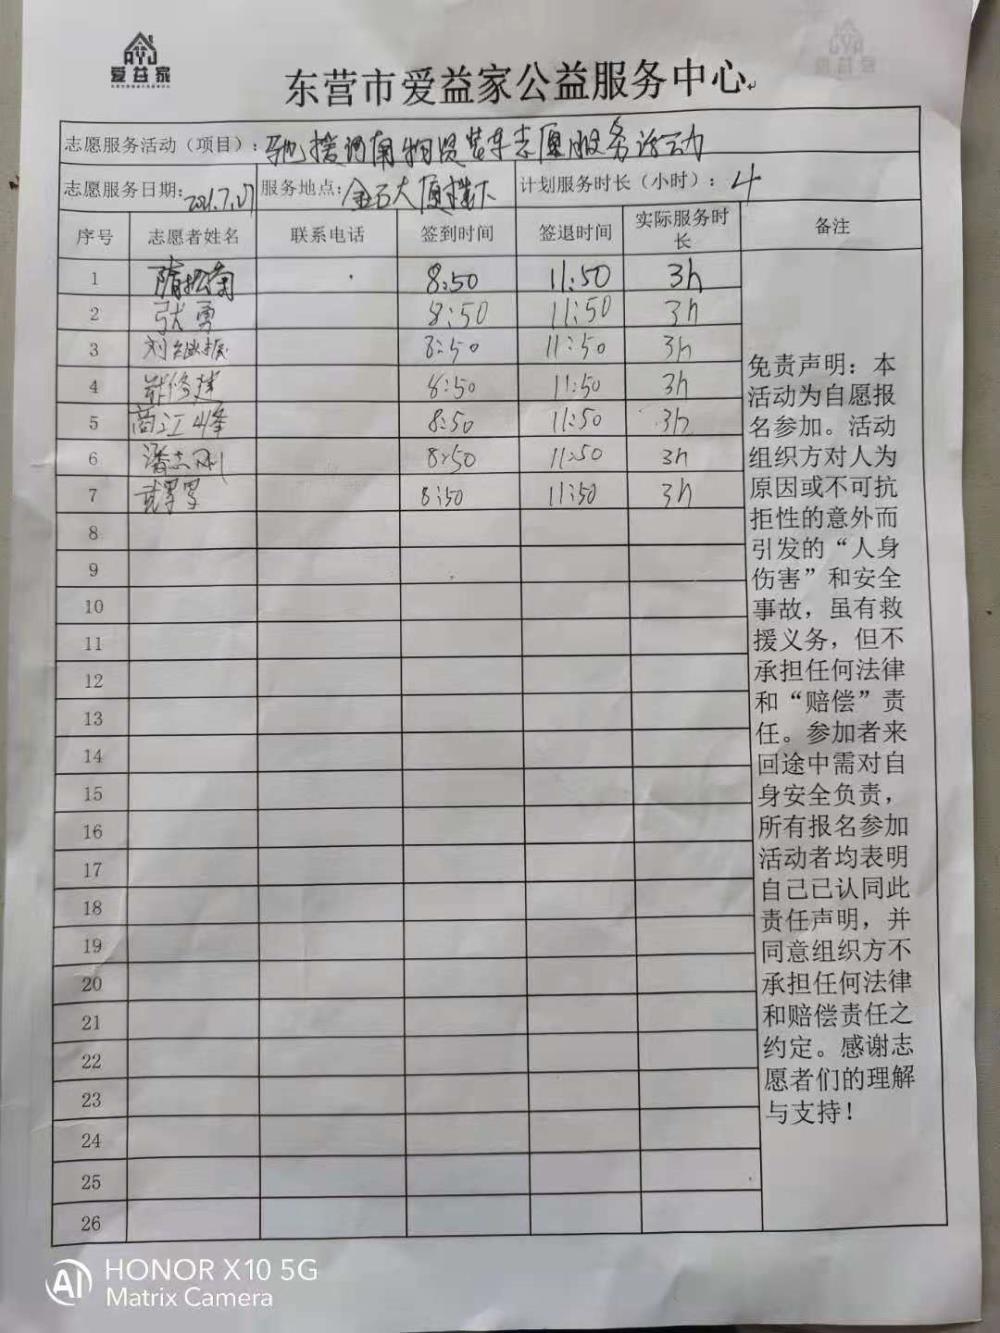 爱益家
东营市爱益家公益服务中心
志愿服务活动（项目）：驰援河南物资装车志愿服务活动
志愿服务日期：2021.7.27 服务地点：金石大厦楼下 计划服务时长（小时）：4
序号 志愿者姓名 联系电话 签到时间 签退时间 实际服务时长 备注
1 8:50 11:50 3h
2 张勇 8:50 11:50 3h
3 刘继振 8:50 11:50 3h
4 8:50 11:50 3h
5 商江峰 8:50 11:50 3h
6 潘志刚 8:50 11:50 3h
7 8:50 11:50 3h
8
9
10
11
12
13
14
15
16
17
18
19
20
21
22
23
24
25
26
免责声明：本
活动为自愿报
名参加。活动
组织方对人为
原因或不可抗
拒性的意外而
引发的“人身
伤害”和安全
事故，虽有救
援义务，但不
承担任何法律
和“赔偿”责
任。参加者来
回途中需对自
身安全负责，
所有报名参加
活动者均表明
自己已认同此
责任声明，并
同意组织方不
承担任何法律
和赔偿责任之
约定。感谢志
愿者们的理解
与支持！
AI HONOR X10 5G
Matrix Camera